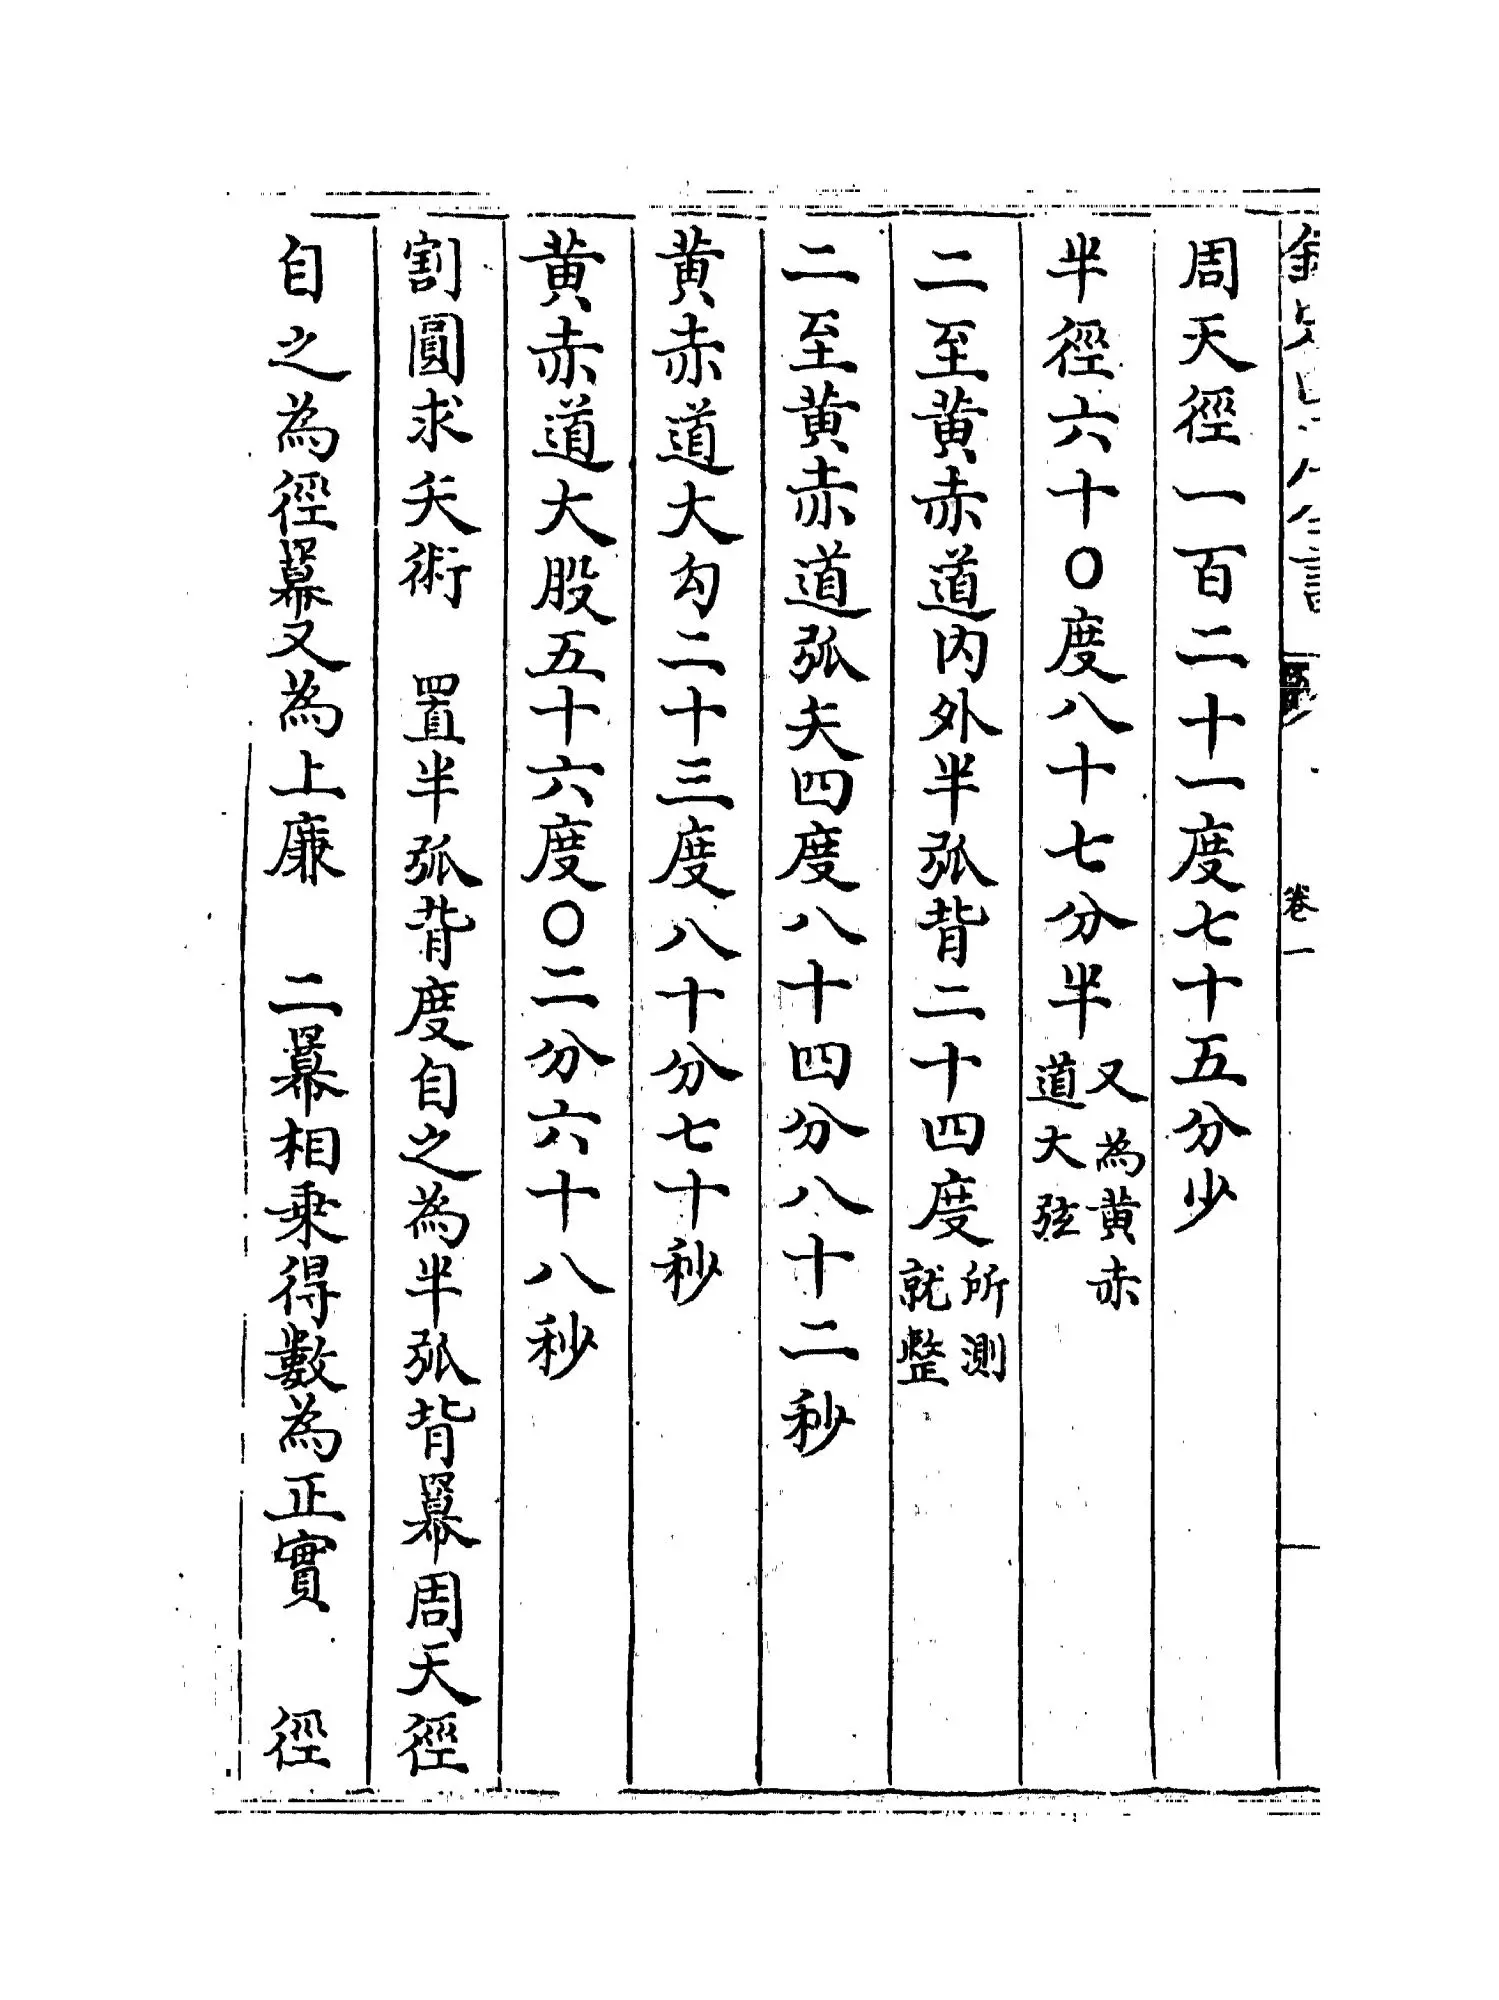 卷一
周天徑一百二十一度七十五分少
半徑六十〇度八十七分半又為黃赤道大弦
二至黃赤道內外半弧背二十四度所測就整
二至黃赤道弧矢四度八十四分八十二秒
黃赤道大勾二十三度八十分七十秒
黃赤道大股五十六度〇二分六十八秒
割圓求矢術 置半弧背度自之為半弧背冪周天徑
自之為徑冪又為上廉 二冪相乘得數為正實 徑